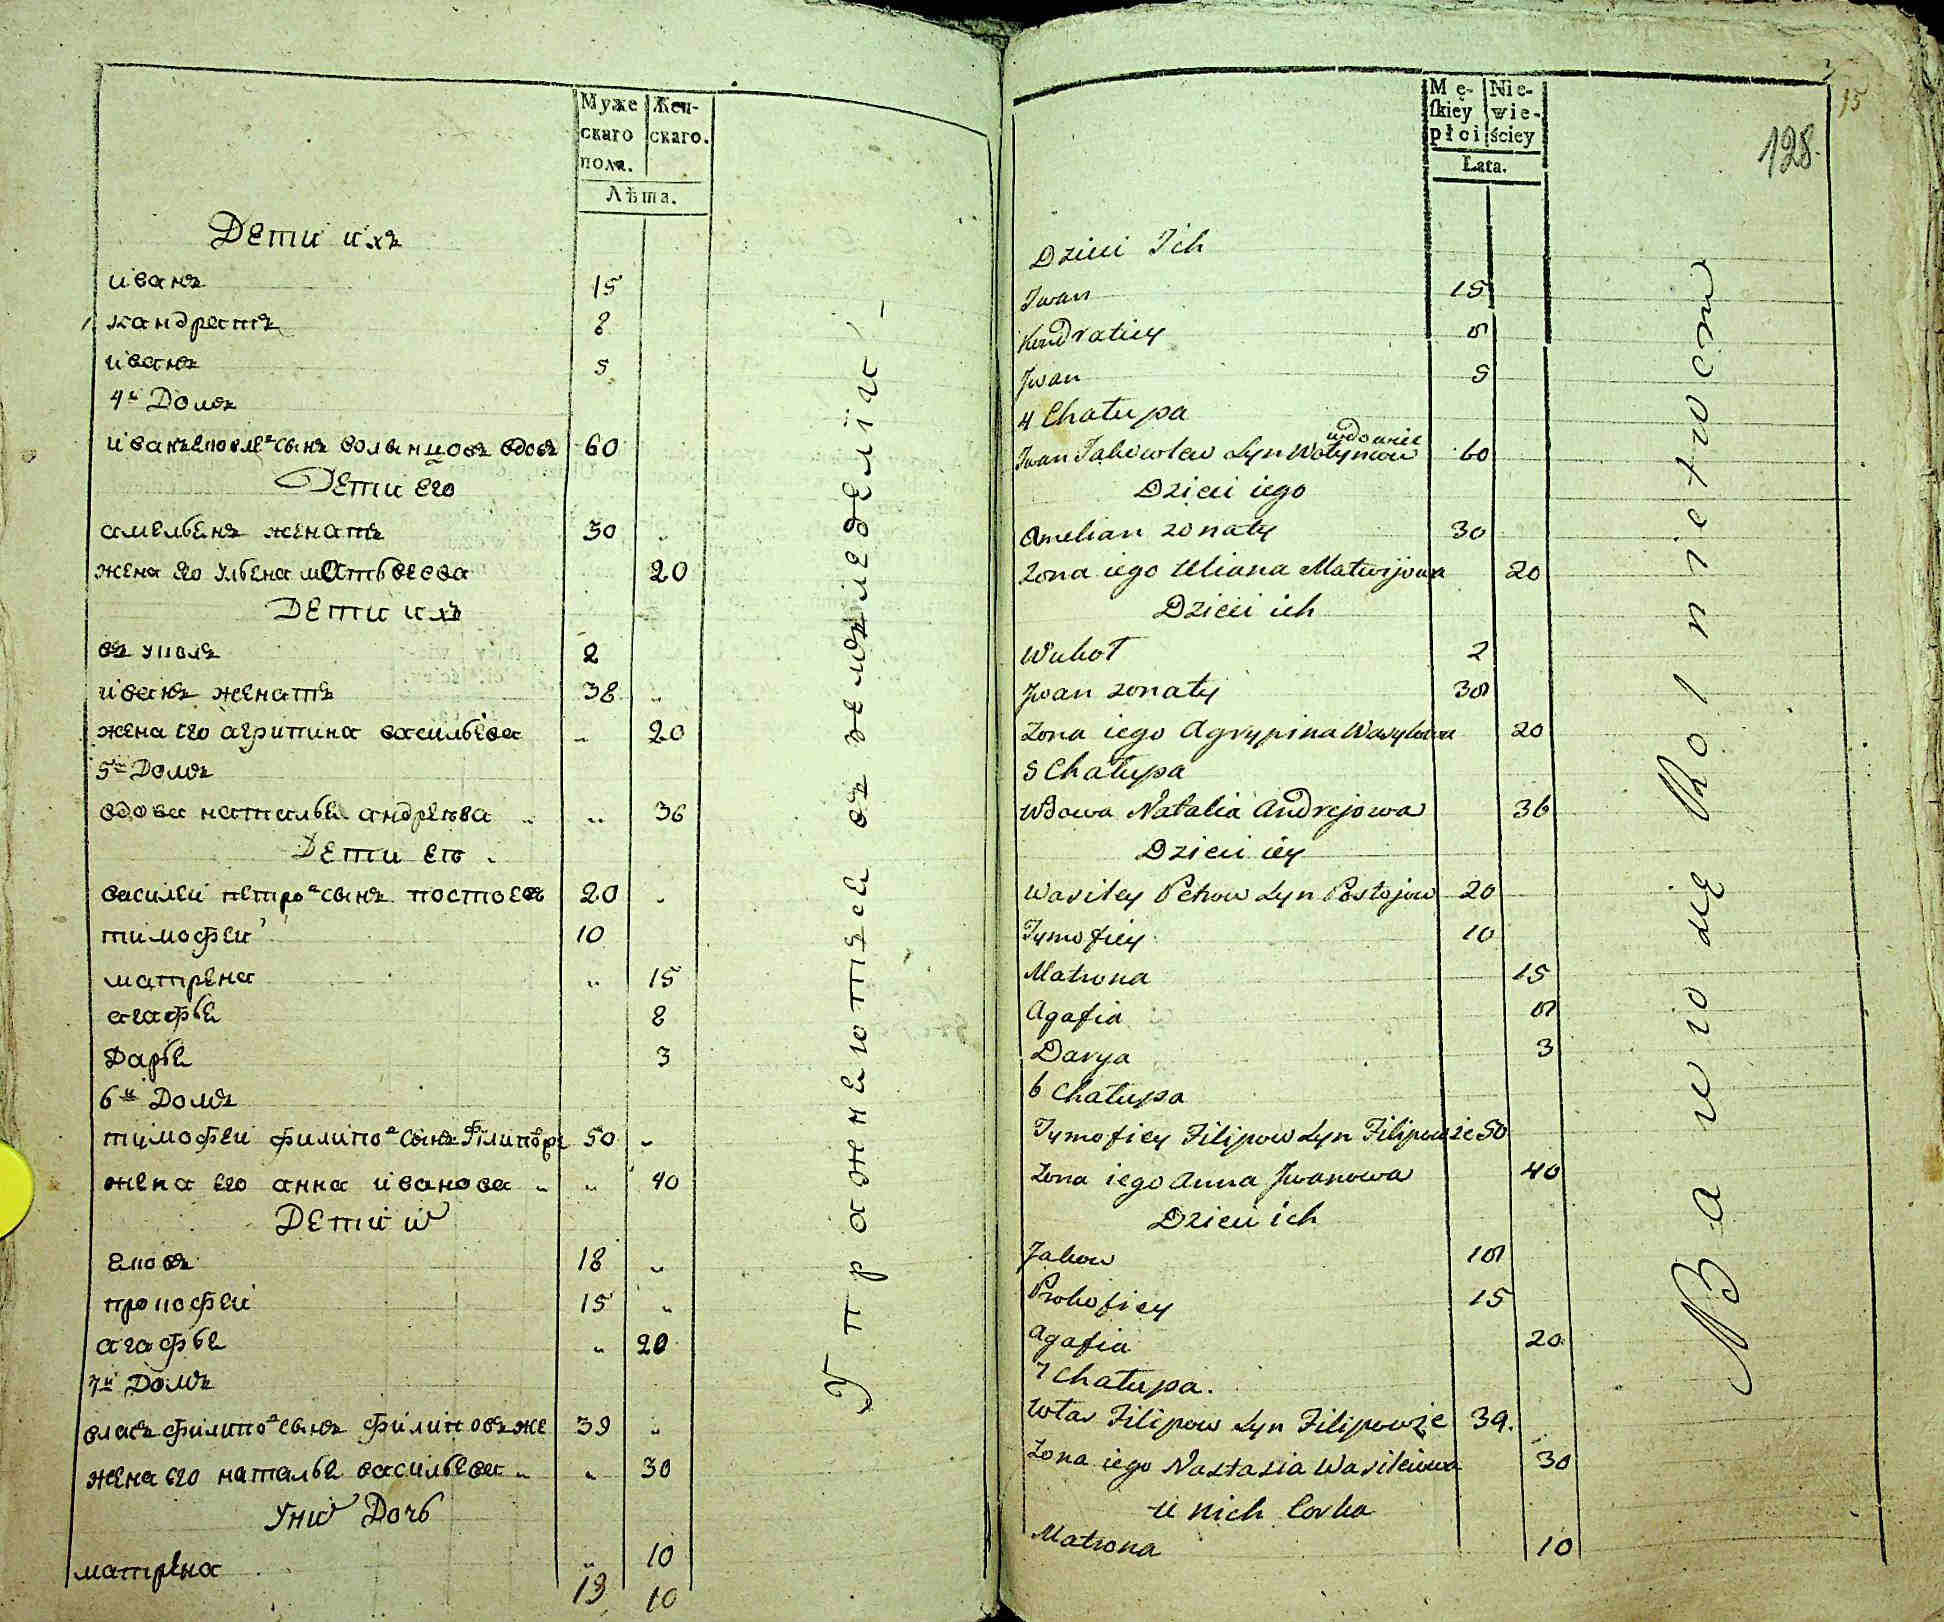 Муже
скаго
пола.
Жен-
скаго.
Лѣта.
Дети ихъ
иванъ 15
кандратъ 8
иванъ 5
4й Домъ
60
Дети его
амельянъ женатъ 30
жена его ульяна матвеева 20
Дети ихъ
вукулъ 2
иванъ женатъ 38
жена его агрипина васильева 20
5й Домъ
вдова наталья андреева 36
Дети ея
василей петровъ сынъ постоевъ 20
тимофей 10
матрена 15
агафья 8
Дарья 3
6й Домъ
тимофей филиповъ сынъ Филиповъ 50
жена его анна иванова 40
Дети их
яковъ 18
прокофей 15
агафья 20
7й Домъ
власъ филиповъ сынъ филиповъ же 39
жена его наталья васильева 30
У них Дочь
матрена 10
19 10
Упражняются въ земледеліи
Mę-
ſkiey
płci
Nie-
wie-
ściey
Lata.
128.
15
Dzieci Ich
Iwan 15
Kondratiey 8
Iwan 5
4 Chałupa
wdowiec
Iwan Jakowlew Syn Wołyncow 60
Dzieci iego
Amelian żonaty 30
Żona iego Uliana Matwijowa 20
Dzieci ich
Wukoł 2
Iwan żonaty 38
Żona iego Agrypina Wasylowa 20
5 Chałupa
Wdowa Natalia Andrejowa 36
Dzieci iey
Wasiley Petrow Syn Postojow 20
Tymofiey 10
Matrona 15
Agafia 8
Darya 3
6 Chałupa
Tymofiey Filipow Syn Filipow że 50
Żona iego Anna Iwanowa 40
Dzieci ich
Jakow 18
Prokofiey 15
Agafia 20
7 Chałupa.
Włas Filipow Syn Filipow że 39.
Żona iego Nastasia Wasilewa 30
U nich Corka
Matrona 10
Bawio się Rolnictwem